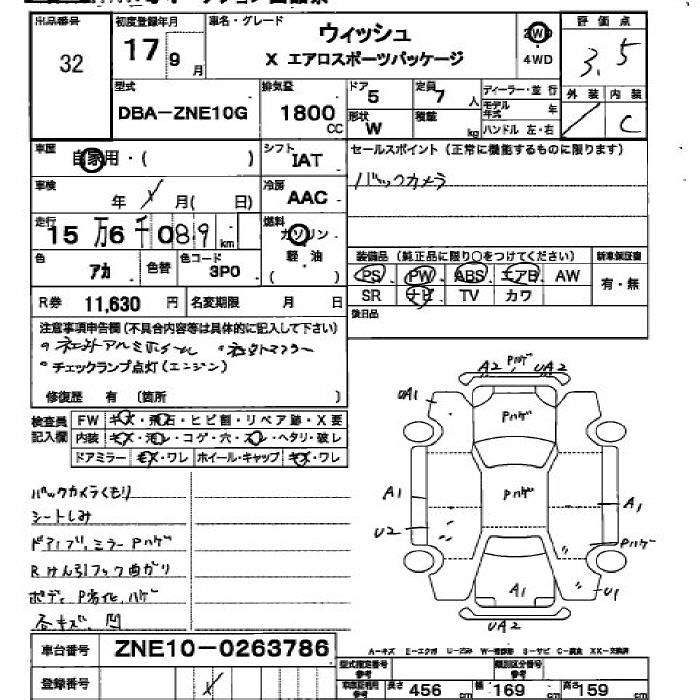 出品番号 初度登録年月 車名・グレード 評価点
32 17 9月 ウィッシュ 2WD 3.5
X エアロスポーツパッケージ 4WD
外装 内装
型式 排気量 ドア 定員 ディーラー・並行
DBA-ZNE10G 1800CC 5 7人 モデル年式 年 C
形状 積載
W kg ハンドル 左・右
車歴 シフト セールスポイント(正常に機能するものに限ります)
自家用・( ) IAT バックカメラ
車検 冷房
年 月( 日) AAC
走行 燃料
15万6千089km ガソリン
色 色替 色コード 軽油 装備品(純正品に限り○をつけてください) 新車保証書
アカ 3P0 ( ) PS PW ABS エアB AW 有・無
R券 11,630円 名変期限 月 日 SR ナビ TV カワ
後日品
注意事項申告欄(不具合内容等は具体的に記入して下さい)
・社外アルミホイール ・社外マフラー
・チェックランプ点灯(エンジン)
修復歴 有(箇所 )
検査員記入欄 FW キズ・飛石・ヒビ割・リペア跡・X要
内装 キズ・汚レ・コゲ・穴・スレ・ヘタリ・破レ
ドアミラー キズ・ワレ ホイール・キャップ キズ・ワレ
バックカメラくもり
シートしみ
ドアノブ,ミラー Pハゲ
Rけん引フック曲がり
ボディ P劣化,ハゲ
各キズ、凹
A2 Pハゲ UA2
UA1 Pハゲ
A1 Pハゲ A1
U2 Pハゲ
A1 U1
UA2
車台番号 ZNE10-0263786
A-キズ E-エクボ U-凹み W-補修跡 S-サビ C-腐食 XX-交換済
登録番号 型式指定番号 参考 類別区分番号 参考
車庫証明用 参考 長さ 456cm 幅 169cm 高さ 159cm